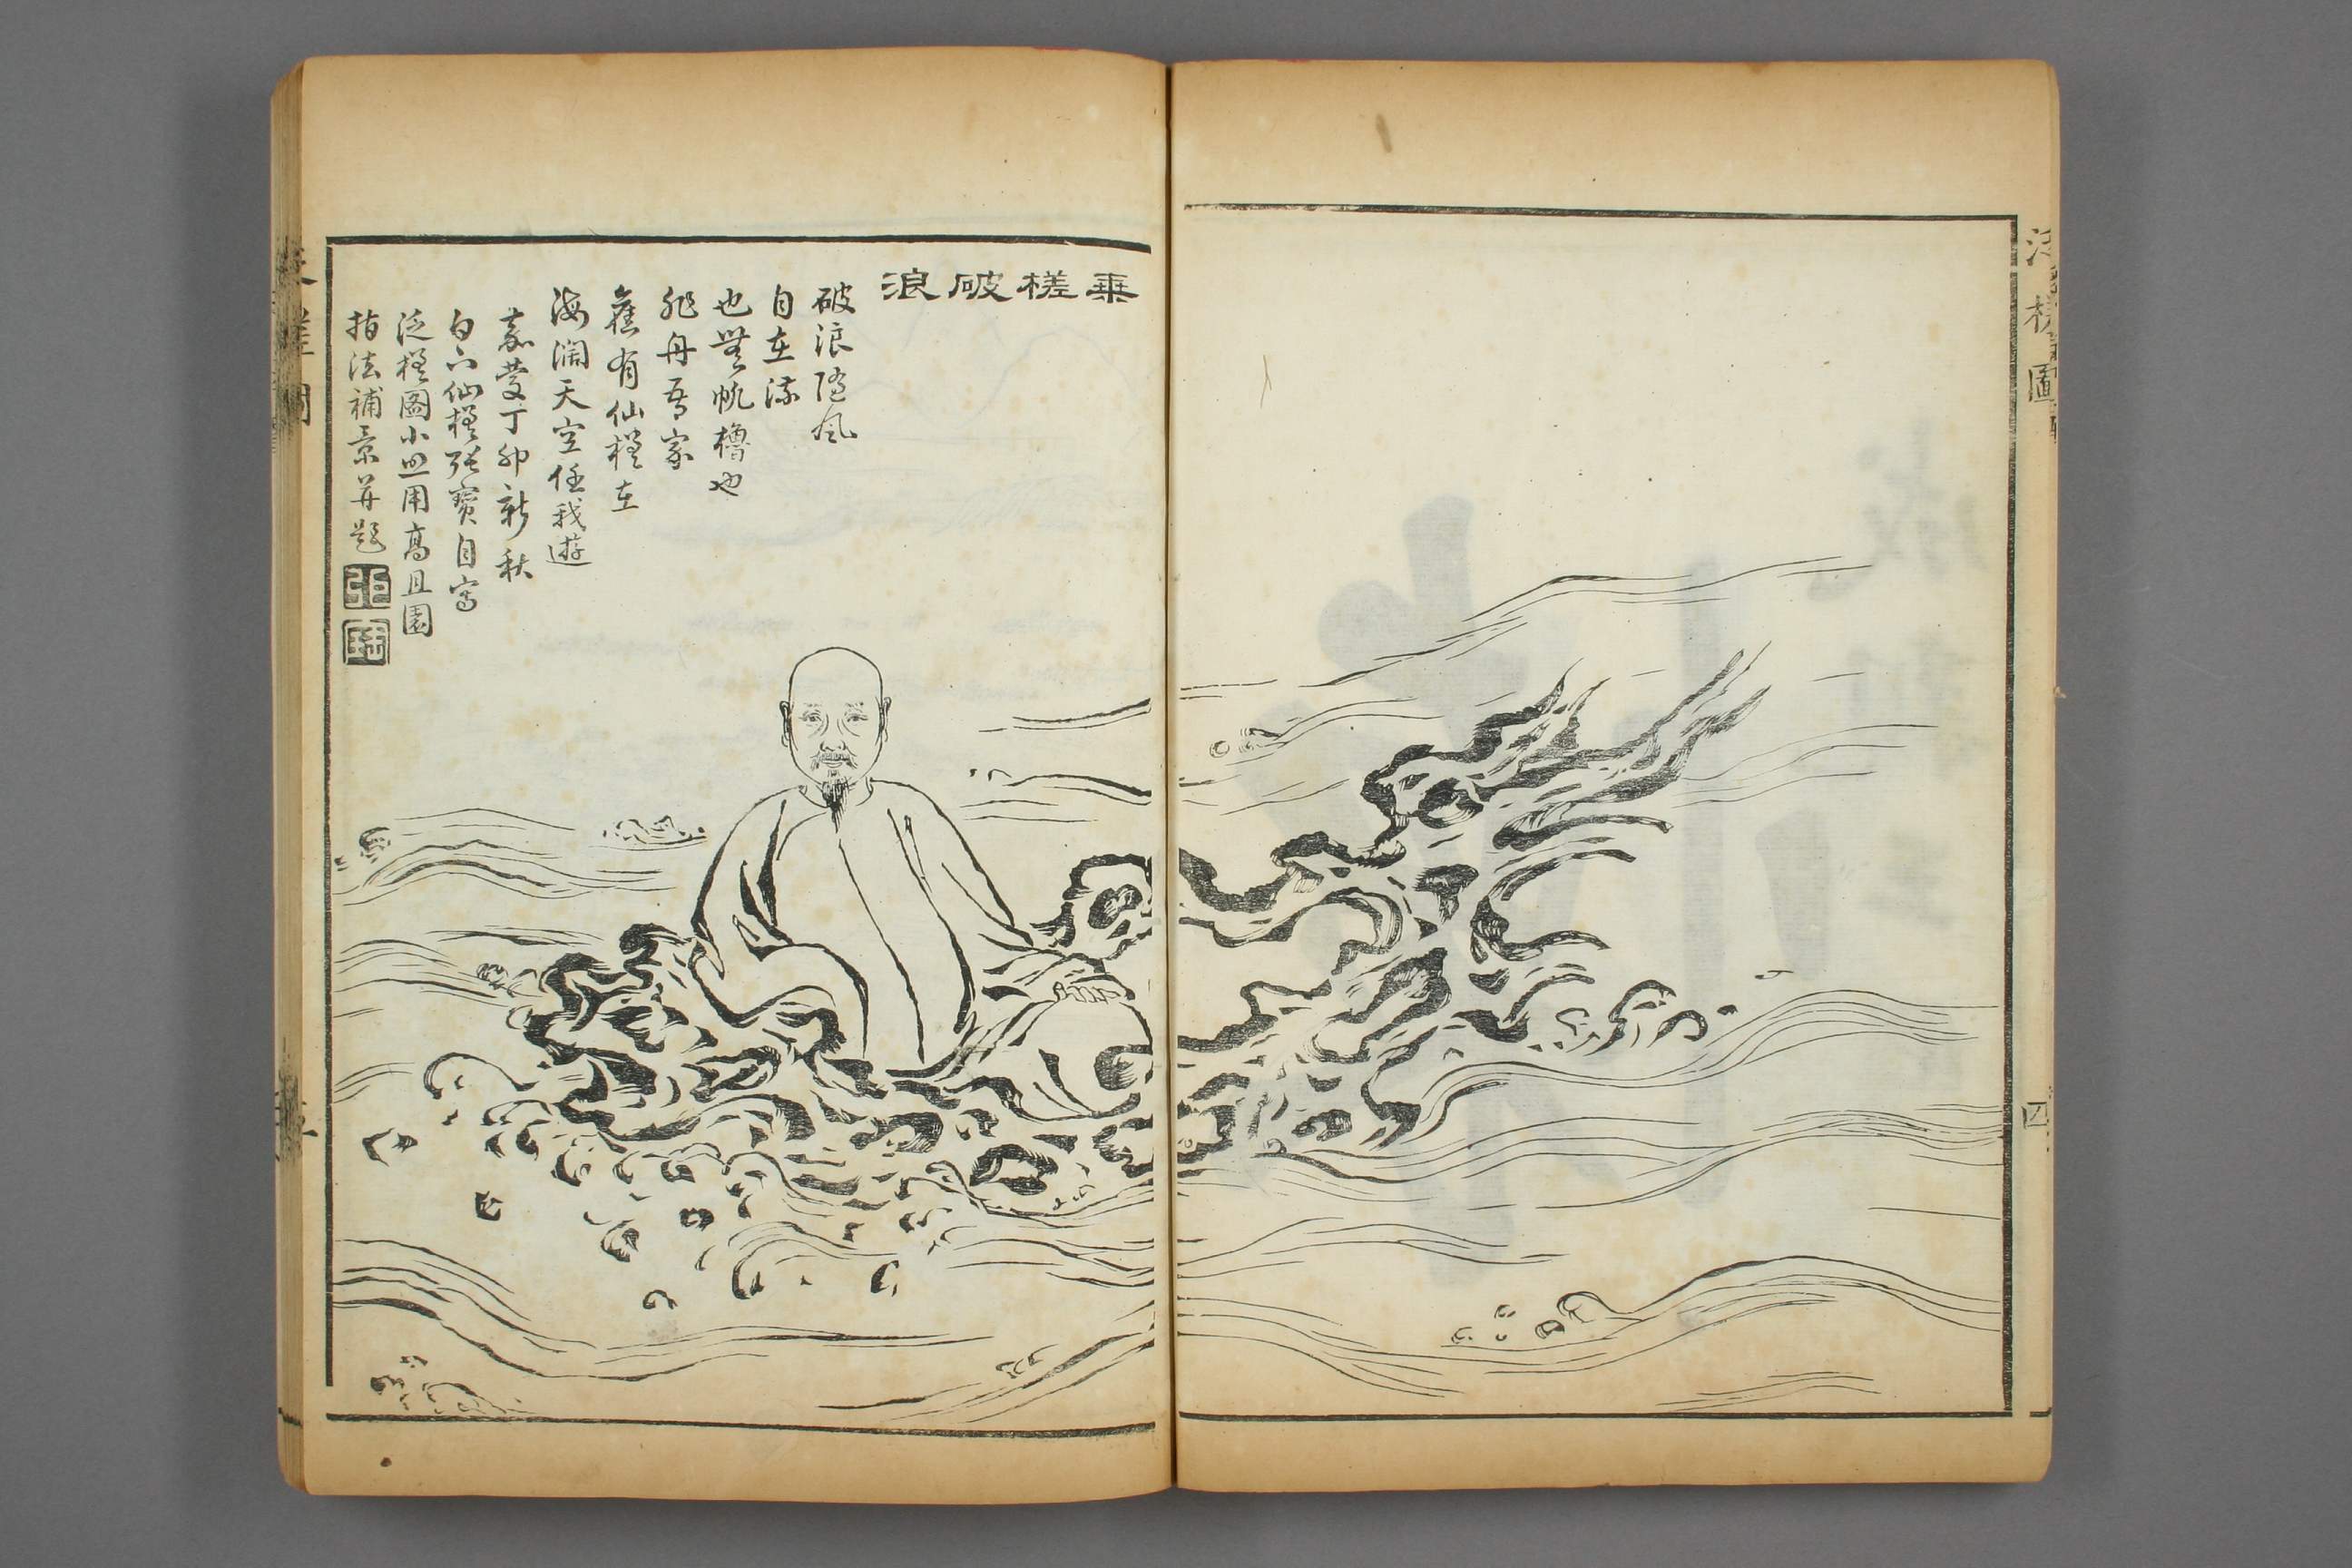 泛槎圖
四
乘槎破浪
破浪隨風
自在流
也無帆櫓也
非舟吾家
舊有仙槎在
海濶天空任我遊
嘉慶丁卯新秋
白下仙槎張寶自寫
泛槎圖小照用高且園
指法補景并題
張
寶